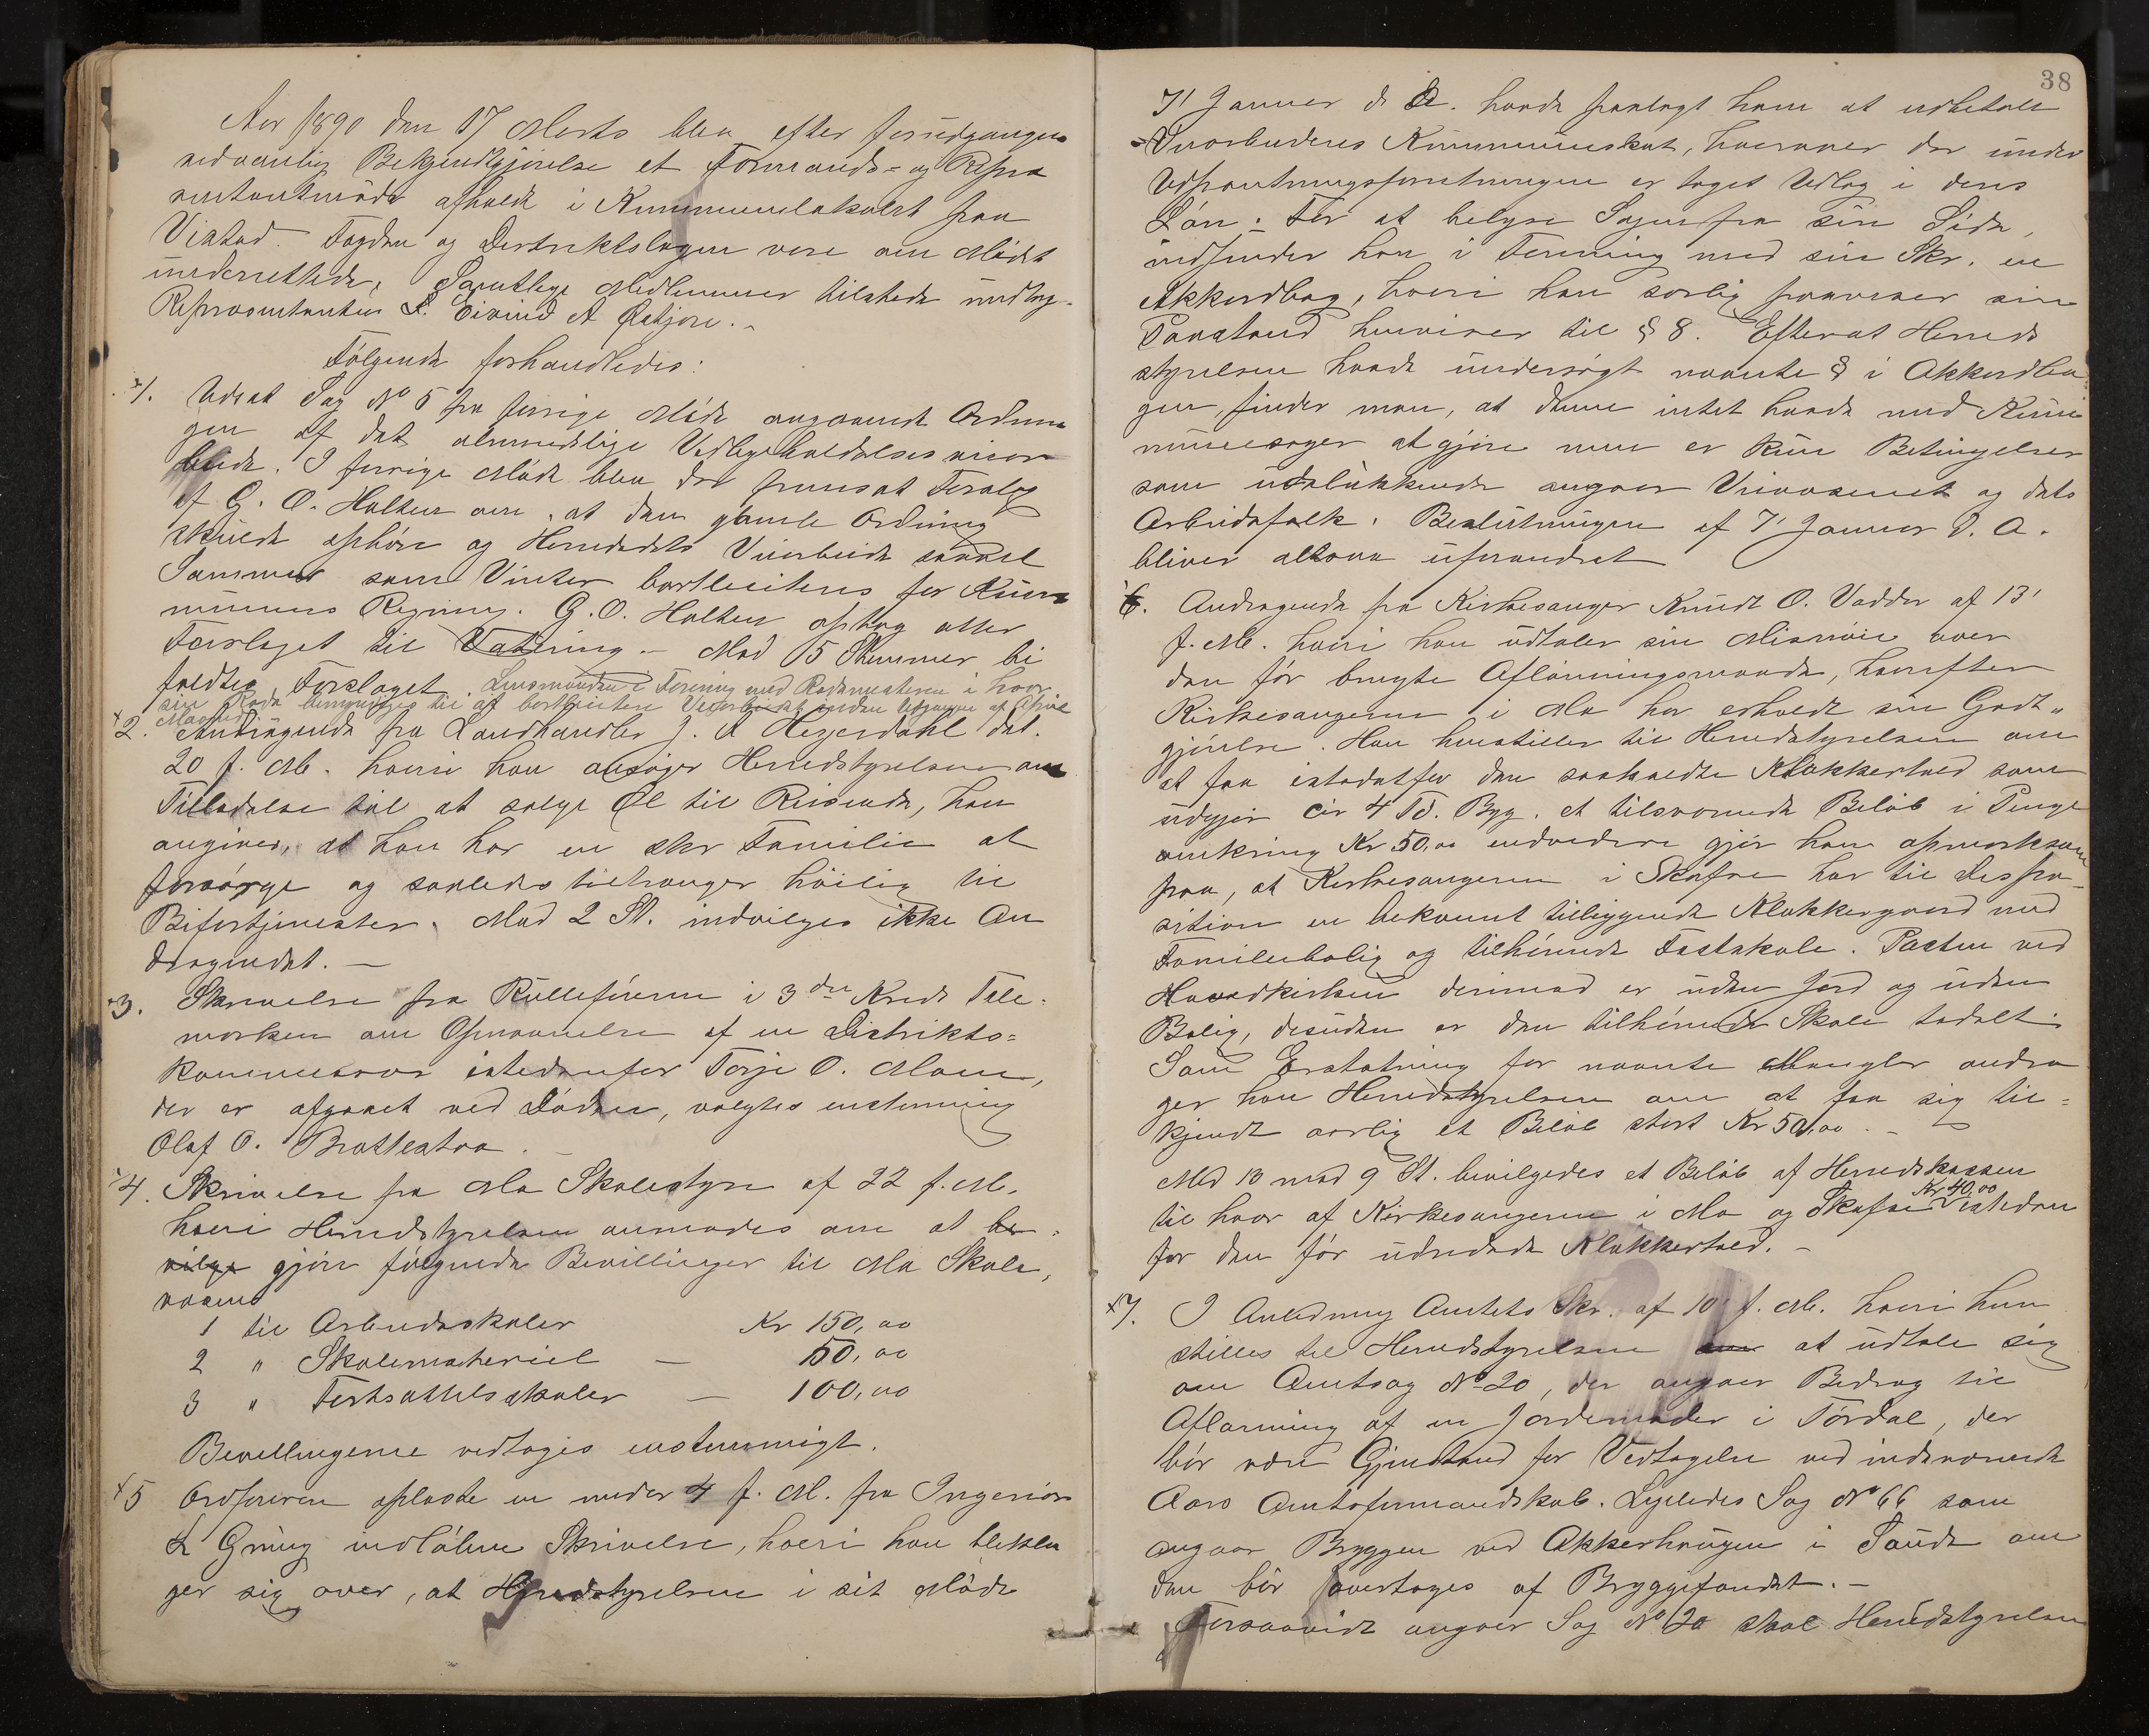 Aar 1890 den 17 Marts blev efter forudgaaende
sedvanlig Bekjendtgjørelse et Formands- og Repræ
sentantmøde afholdt i Kommunelokalet paa
Vistad. Fogden og Distriktslægen vare om Mødet
underrettede. Samtlige Medlemmer tilstede undtag-
Repræsentanten S. Eivind A
Følgende forhandledes:
1. Udsat Sag No 5 fra forrige Møde angaaende Ordnin
gen af det almindelige Vedligeholdelses
beide. I forrige Møde blev der fremsat Forslag
af G. O. Holten om, at den gamle Ordning
skulde ophøre og Herredets Veiarbeide saavel
Sommer som Vinter bortliciteres for Kom
munens Regning. G. O. Holten optog atter
Forslaget til Votering. — Mod 5 Stemmer bi
faldtes Forslaget. Lensmanden i Forening med Rodemesteren i hver
sin Rode bemyndiges til at bortlicitere Veiarbeidet inden Udgangen af April
Maaned
2. Andragende fra Landhandler J. A Hegersdahl dat.
20 f. M. hvori han ansøger Herredstyrelsen om
Tilladelse til at sælge Øl til Reisende, han
angiver, at han har en stor Familie at
forsørge og saaledes tiltrænger høilig til
Bifortjenester. Mod 2 St. indvilges ikke An
dragendet. —
3. Skrivelse fra Rulleføreren i 3die Kreds Tele-
marken om Opnævnelse af en Distrikts-
kommissær istedenfor Torje O. Moen,
der er afgaaet ved Døden, valgtes enstemmig
Olaf O. Brattestaa. —
4. Skrivelse fra Mo Skolestyre af 22 f. M.
hvori Herredstyrelsen anmodes om at be-
vilge gjøre følgende Bevillinger til Mo Skole,
væsend
1 til Arbeidsskoler Kr 150,00
2 " Skolemateriel — 50,00
3 " Fortsættelsesskoler — 100,00
Bevillingerne vedtoges enstemmigt.
5 Ordføreren oplæste en under 4 f. M. fra Ingeniør
L Gring indløben Skrivelse, hvori han bekla
ger sig over, at Herredstyrelsen i sit Møde
38
7' Januar d. A. havde paalagt ham at udbetale
Veiarbeideres Kommuneskat, hvorover der under
Udpantningsforretningen er taget Udlæg i deres
Løn. — For at belyse Sagen fra sin Side,
indsender han i Forening med sin Skr. en
Akkordbog, hvori han særlig paaviser sin
Paastand henviser til § 8. Efterat Herreds
styrelsen havde undersøgt nævnte § i Akkordbo
gen, finder man, at denne intet havde med Kom
munesager at gjøre men er kun Betingelser
som udelukkende angaar Veivæsenet og dets
Arbeidsfolk. Beslutningen af 7' Januar d. A.
bliver altsaa uforandret
6. Andragende fra Kirkesanger Knudt O. Vadder af 13'
f. M. hvori han udtaler sin Misnøie over
den før brugte Aflønningsmaade, hvorefter
Kirkesangeren i Mo har erholdt sin Godt-
gjørelse. Han henstiller til Herredstyrelsen om
at faa istedetfor den saakaldte Klokkertold som
udgjør cir 4 Td. Byg. et tilsvarende Beløb i Penge
omkring Kr 50,00 endvidere gjør han opmærksom
paa, at Kirkesangeren i Skafse har til Dispo-
sition en bekvemt tilliggende Klokkergaard med
Familiebolig og tilhørende Fastskole. Posten ved
Hovedkirken derimod er uden Jord og uden
Bolig, desuden er den tilhørende Skole todelt.
Som Erstatning for nævnte Mangler andra
ger han Herredstyrelsen om at faa sig til-
kjendt aarlig et Beløb stort Kr 50,00. —
Med 13 mod 9 St. bevilgedes et Beløb af Herredskassen
Kr 40,00
til hver af Kirkesangerne i Mo og Skafse isteden
for den før udredede Klokkertold. —
7. I Anledning Amtets Skr. af 10' f. M. hvori hen
stilles til Herredstyrelsen om at udtale sig
om Amtsag No 20, der angaar Bidrag til
Aflønning af en Jordemoder i Tørdal, der
bør være Gjenstand for Vedtagelse ved indeværende
Aars Amtsformandskab. Ligeledes Sag No 66 som
angaar Bryggen ved Akkerhaugen i Saude om
den bør overtages af Bryggefondet. —
Forsaavidt angaar Sag No 20 skal Herredstyrelsen